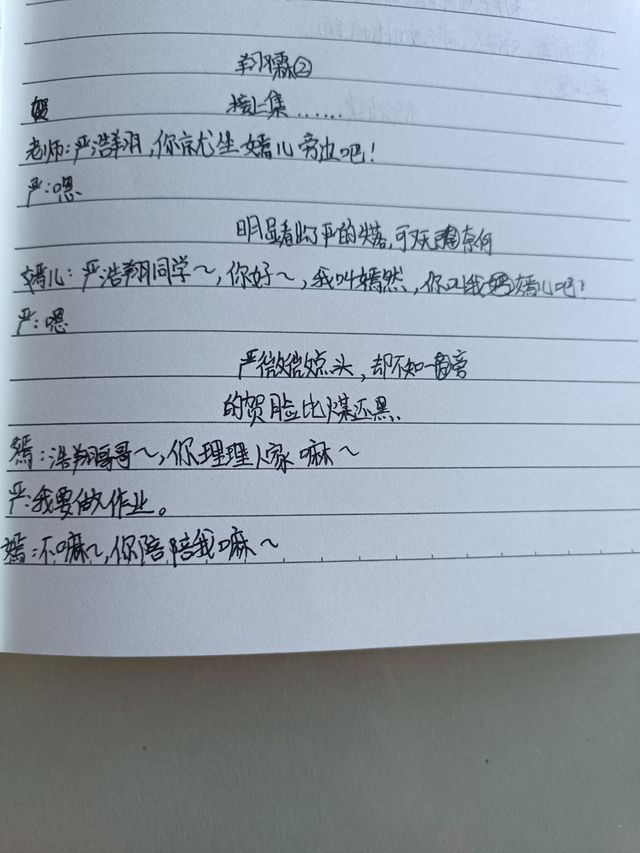 翔霖②
接上集……
老师:严浩翔,你就坐嫣儿旁边吧!
严:嗯
明显看出了严的失落,可又无奈何
嫣儿:严浩翔同学~,你好~,我叫嫣然,你叫我嫣儿吧!
严:嗯
严微微点头,却不知一旁
的贺脸比煤还黑.
嫣:浩翔哥哥~,你理理人家嘛~
严:我要做作业。
嫣:不嘛~,你陪陪我嘛~